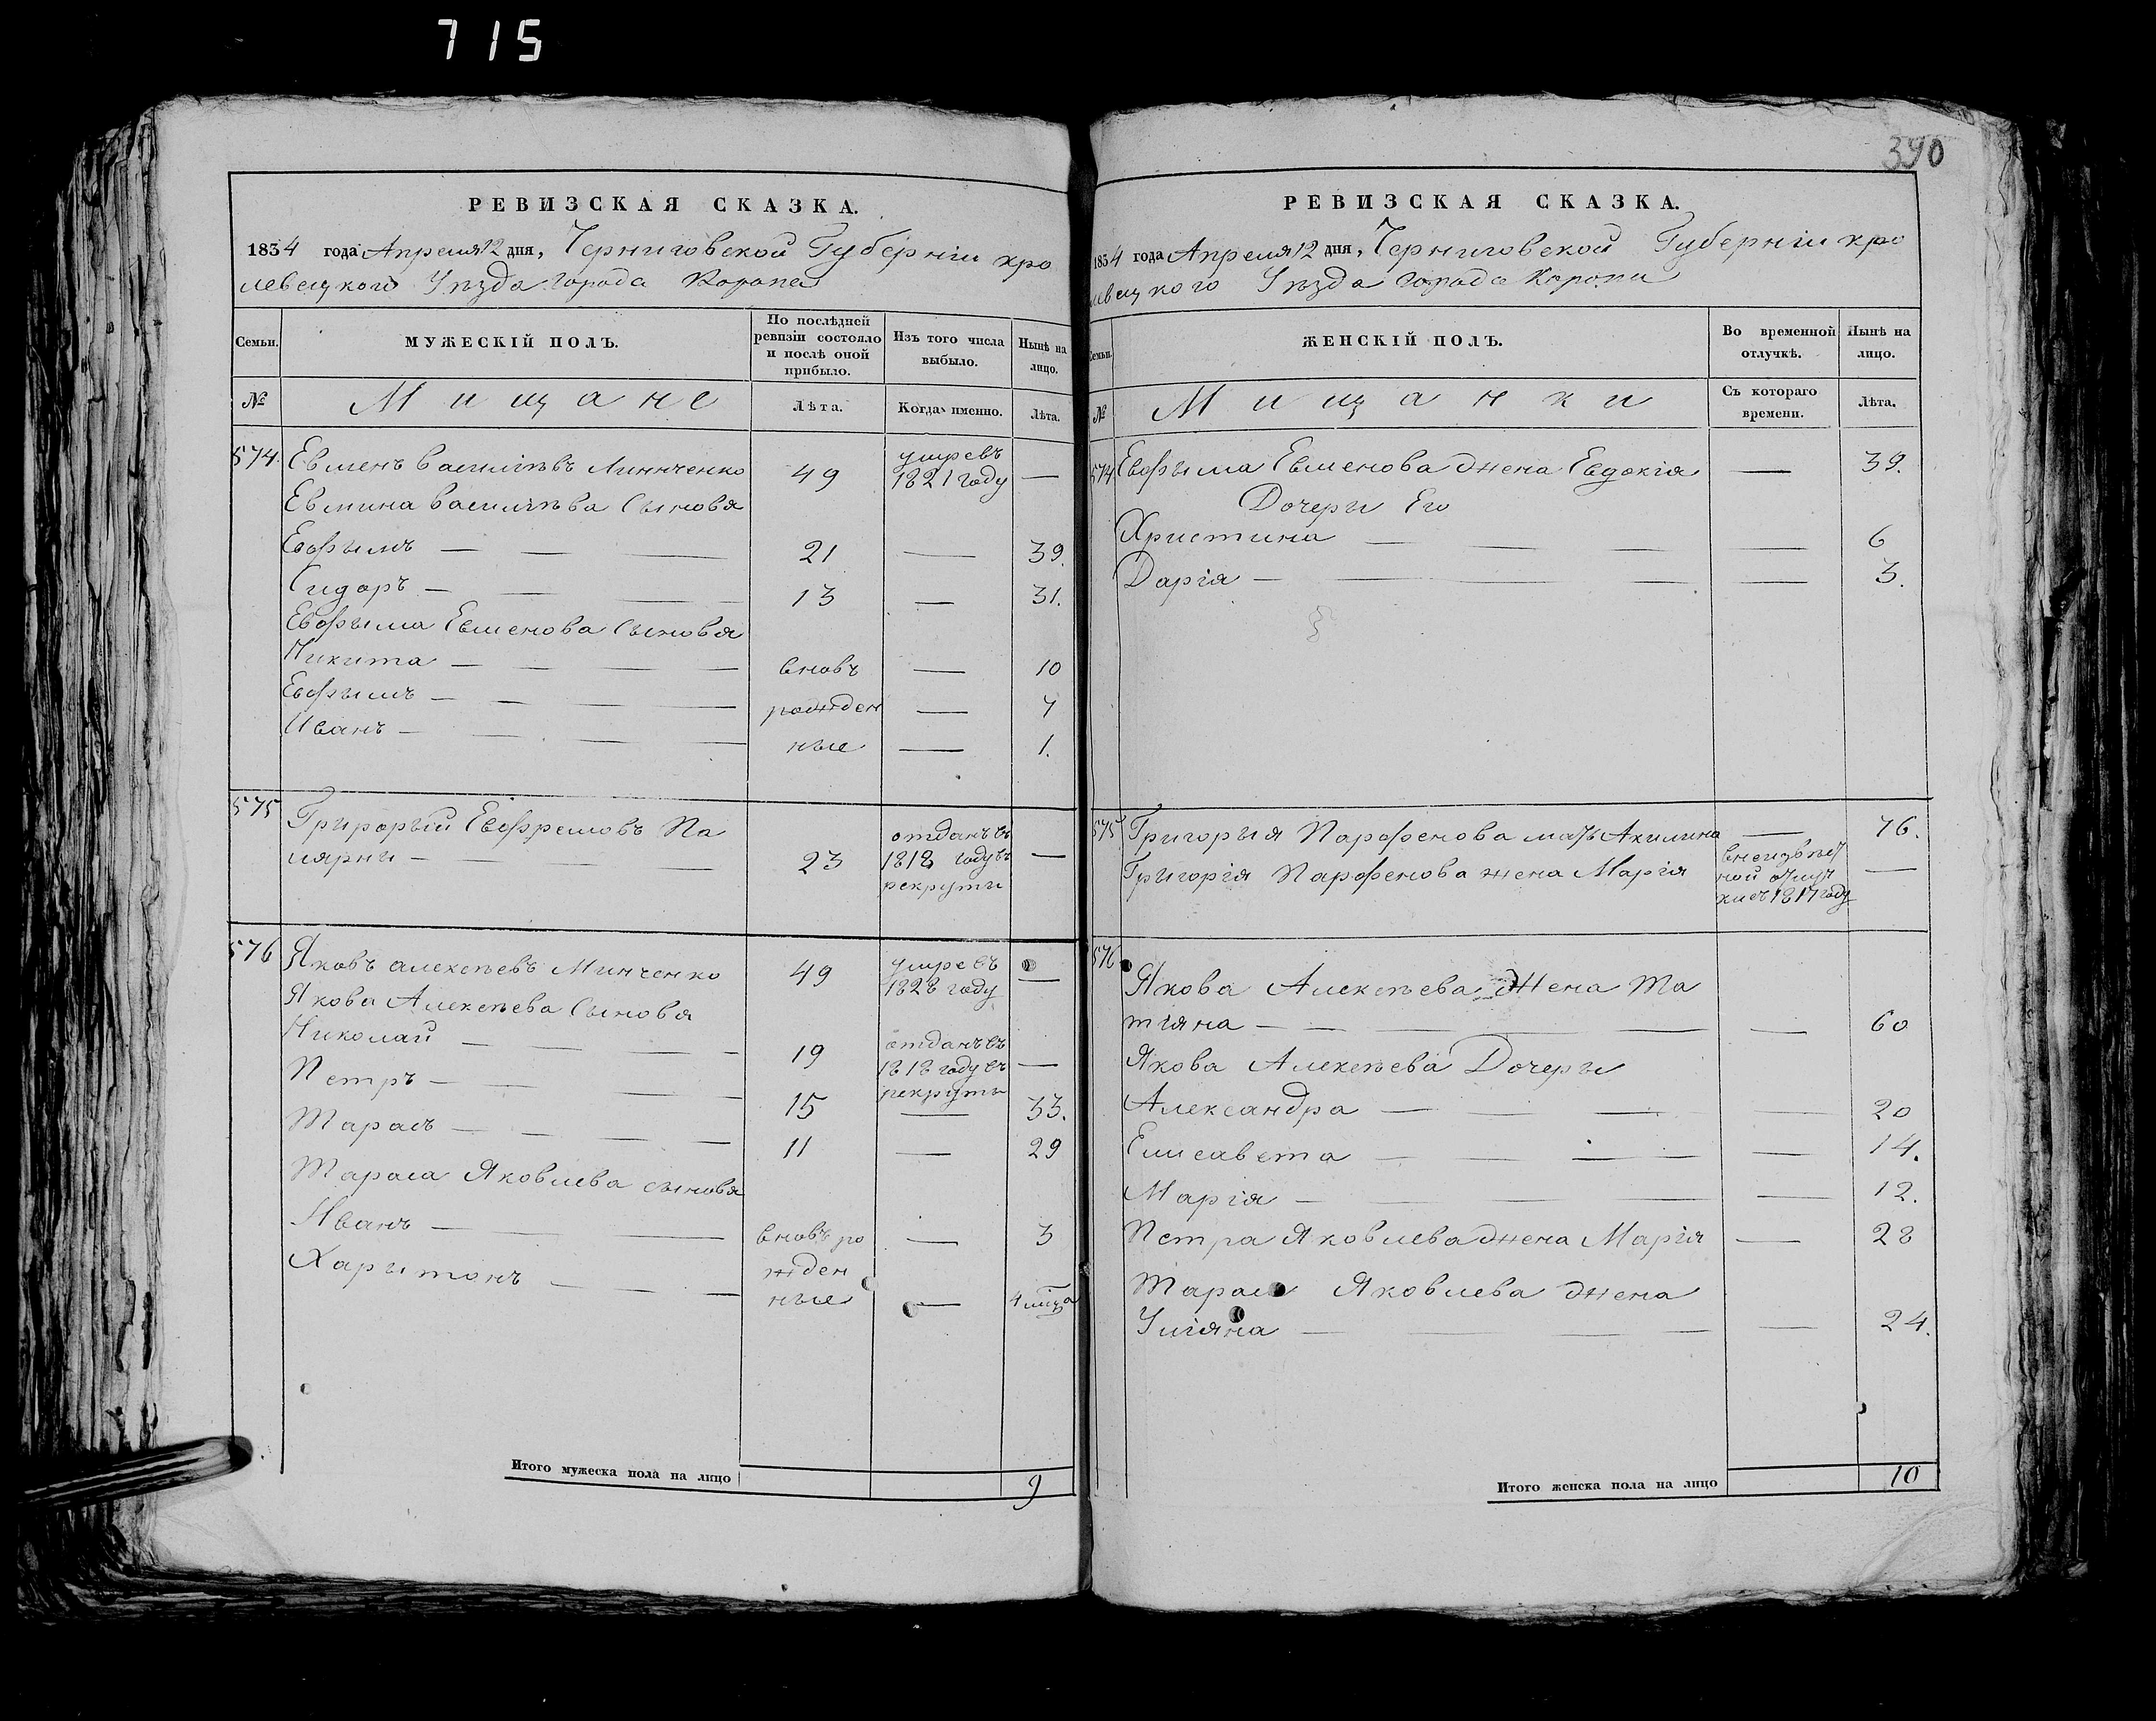 715
390
РЕВИЗСКАЯ СКАЗКА.
1834 года Апреля 12 дня, Черниговской Губерніи кро
левецкого Уѣзда города Коропа
Семьи.
МУЖЕСКІЙ ПОЛЪ.
По послѣдней ревизіи состояло и послѣ оной прибыло.
Изъ того числа выбыло.
Нынѣ на лицо.
№
Мищане
Лѣта.
Когда именно.
Лѣта.
574. Евменъ Василѣвъ Линнченко 49 умревъ 1821 году —
Евмина Василѣва Сыновя
Евфымъ — 21 — 39.
Сидоръ — 13 — 31.
Евфыма Евменова Сыновя
Никита — вновъ — 10
Евфымъ — рожден — 7
Иванъ — ные — 1.
575 Григорый Евфремовъ Па
лярны — 23 отданъ въ 1818 году въ рекруты —
576 Яковъ алексѣевъ Минченко 49 умревъ 1828 году —
Якова Алексѣева Сыновя
Николай — 19 отданъ въ 1818 году въ рекруты —
Петръ — 15 — 33.
Тарасъ — 11 — 29
Тараса Яковлева сыновя
Иванъ — вновъ ро — 3
Харытонъ — жден
ные — 4 мца
Итого мужеска пола на лицо 9
РЕВИЗСКАЯ СКАЗКА.
1834 года Апреля 12 дня, Черниговской Губерніи кро
левецкого Уѣзда города Коропа
Семьи.
ЖЕНСКІЙ ПОЛЪ.
Во временной отлучкѣ.
Нынѣ на лицо.
№
Мищанки
Съ котораго времени.
Лѣта.
574 Евфыма Евменова жена Евдокія — 39.
Дочеры Его
Христина — 6
Дарія — 3.
575 Григорыя Парфенова мать Акилина — 76.
Григорія Парфенова жена Марія внеизвѣст ной отлуч ки съ 1817 году —
576 Якова Алексѣева Жена Та
тіяна — 60
Якова Алексѣева Дочеры
Александра — 20
Елисавета — 14.
Марія — 12.
Петра Яковлева жена Марія — 28
Тараса Яковлева жена
Уліяна — 24.
Итого женска пола на лицо 10